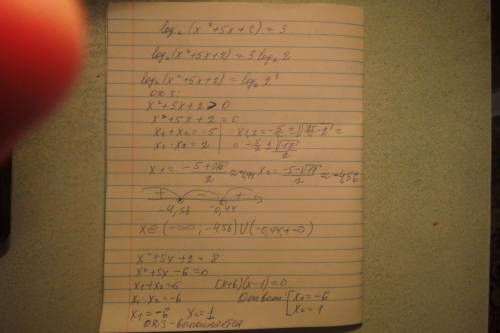 log₂(x²+5x+2)=3
log₂(x²+5x+2)=3log₂2
log₂(x²+5x+2)=log₂2³
ОДЗ:
x²+5x+2>0
x²+5x+2=0
x₁+x₂=-5
x₁·x₂=2
x₁,₂=-5/2±√(25/4-2)=
=-5/2±√17/2
x₁=(-5+√17)/2≈-0,44 x₂=(-5-√17)/2≈-4,56
+ - +
-4,56 -0,44
x∈(-∞;-4,56)∪(-0,44;+∞)
x²+5x+2=8
x²+5x-6=0
x₁+x₂=-5 (x+6)(x-1)=0
x₁·x₂=-6 Ответ: [x₁=-6
x₂=1
x₁=-6, x₂=1
ОДЗ-выполняется